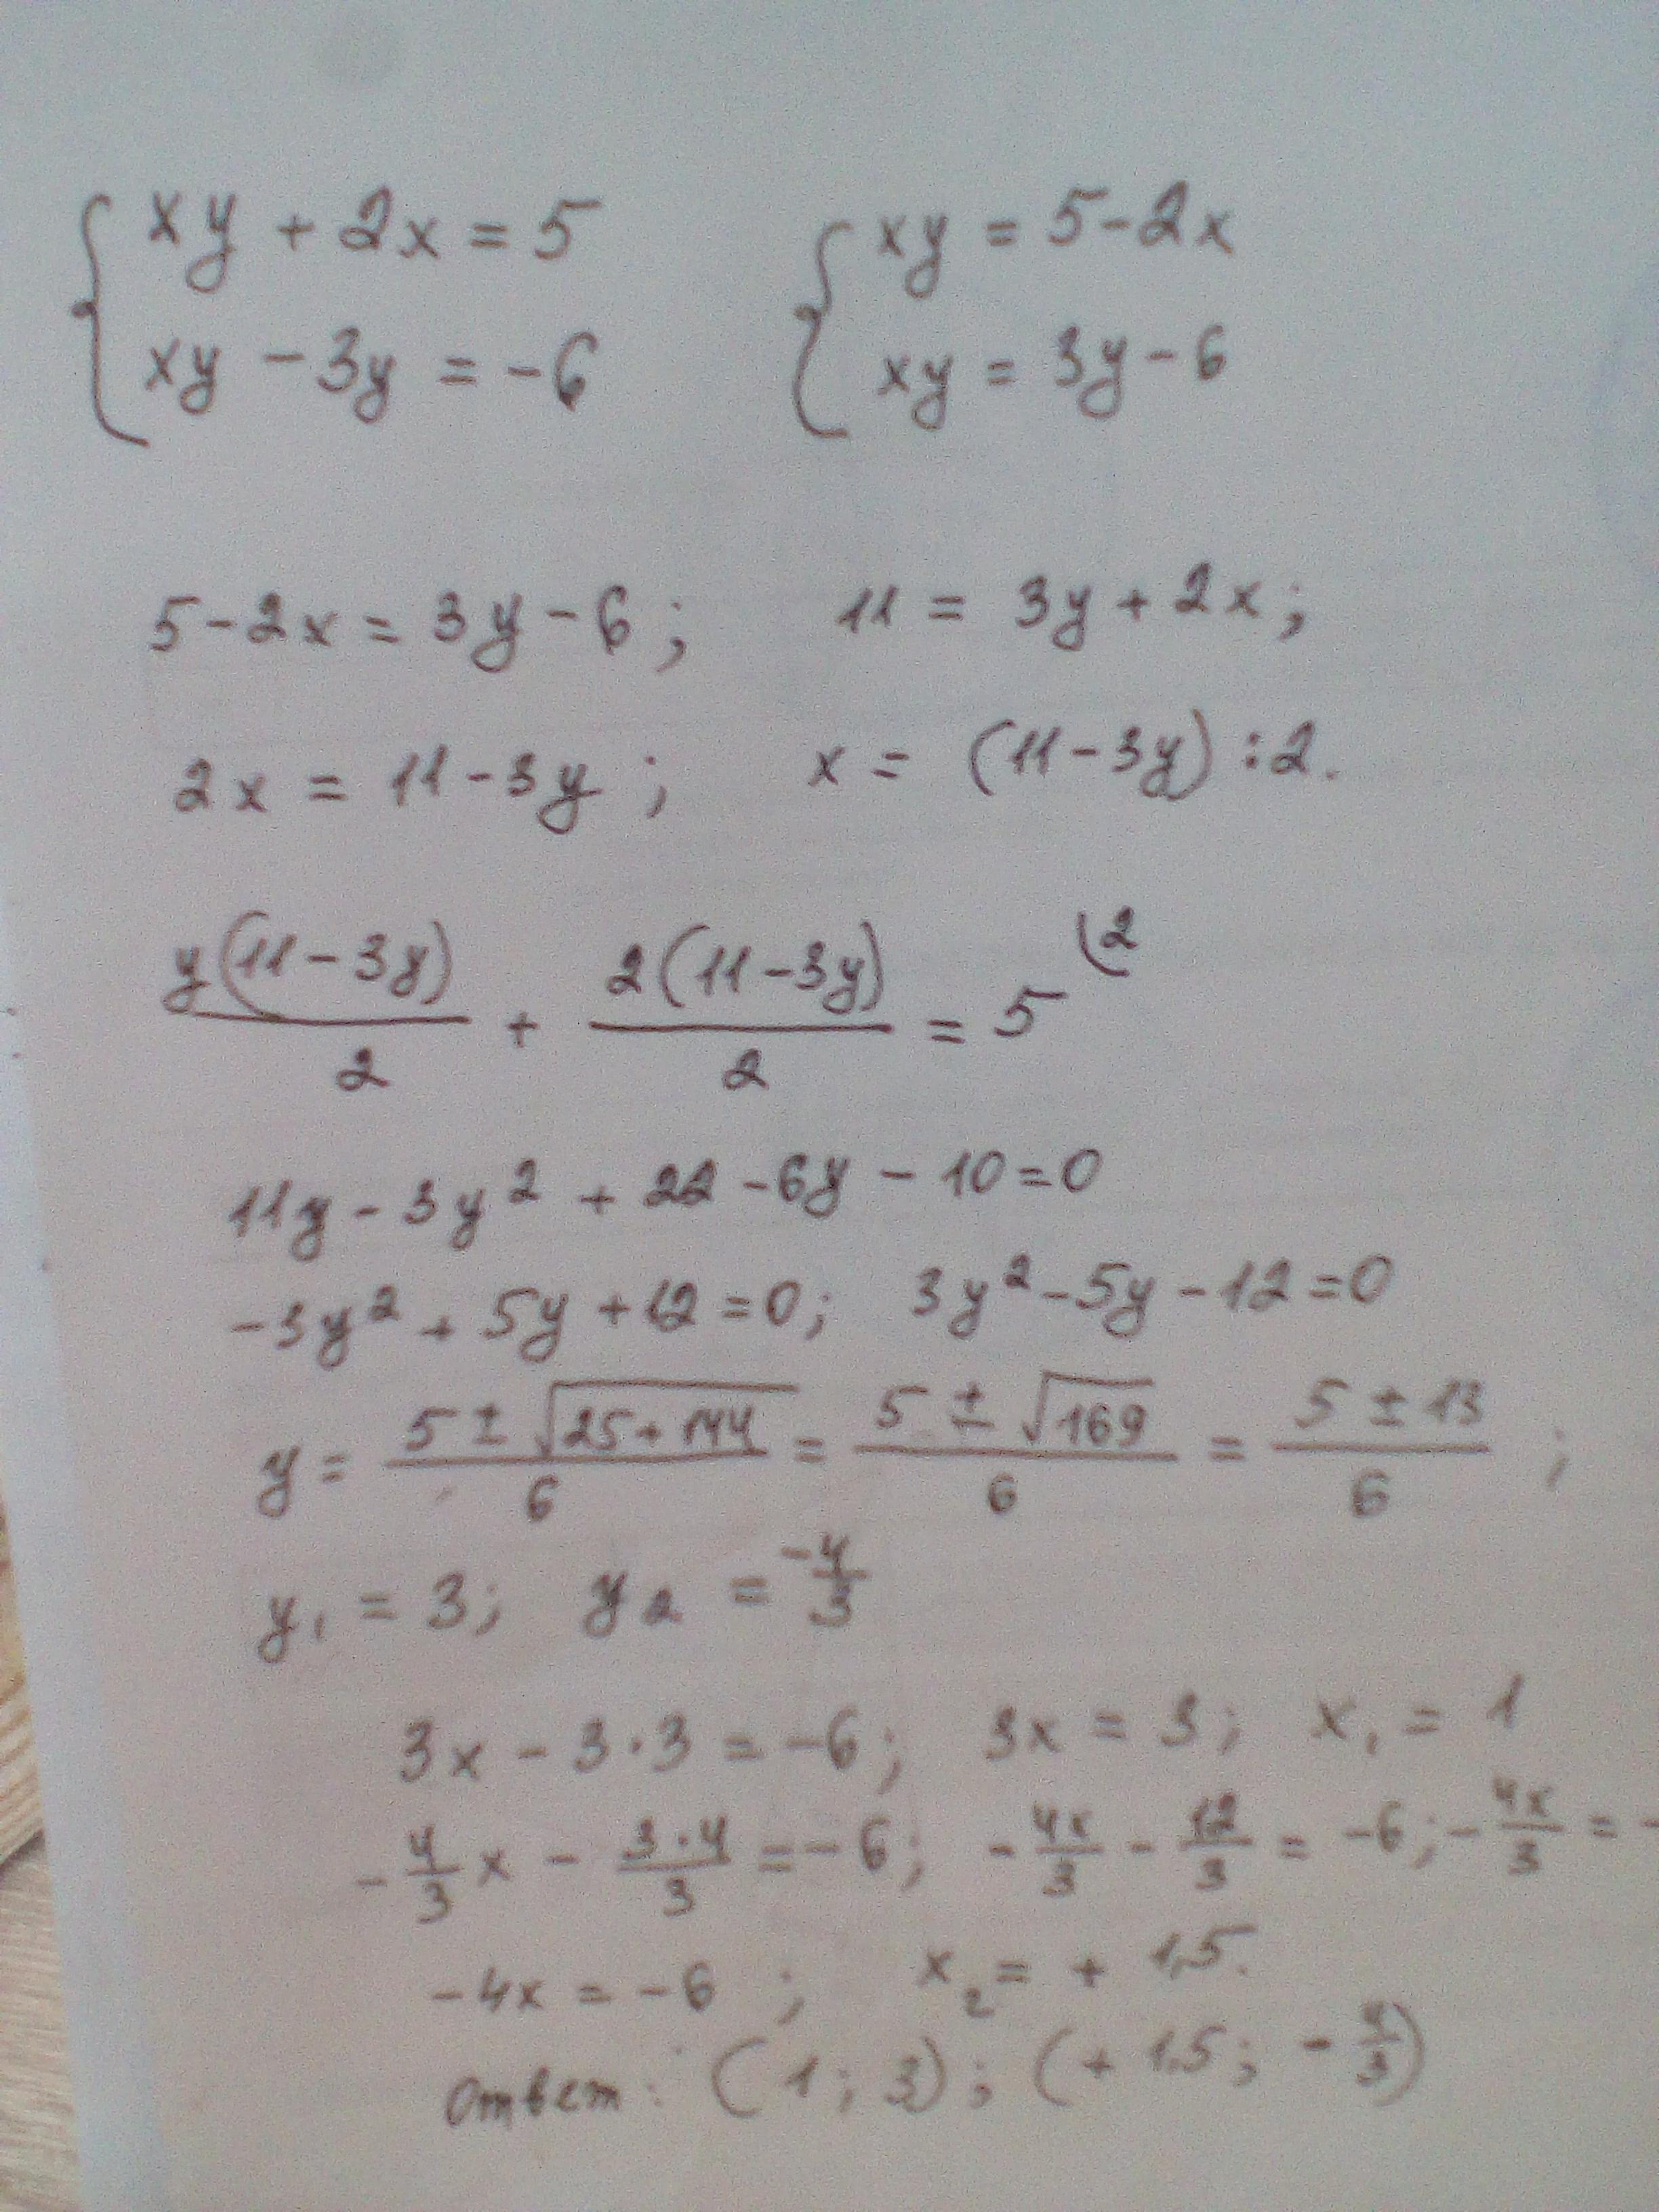 { xy + 2x = 5 { xy = 5 - 2x
xy - 3y = -6 xy = 3y - 6
5 - 2x = 3y - 6; 11 = 3y + 2x;
2x = 11 - 3y; x = (11 - 3y) : 2.
y(11 - 3y)/2 + 2(11 - 3y)/2 = 5 (2
11y - 3y² + 22 - 6y - 10 = 0
-3y² + 5y + 12 = 0; 3y² - 5y - 12 = 0
y = (5 ± √(25 + 144))/6 = (5 ± √169)/6 = (5 ± 13)/6 ;
y₁ = 3; y₂ = -4/3
3x - 3·3 = -6; 3x = 3; x₁ = 1
-4/3 x - 3·4/3 = -6; -4x/3 - 12/3 = -6; -4x/3 = -
-4x = -6 ; x₂ = + 1,5.
Ответ: (1; 3); (+ 1,5; -4/3)